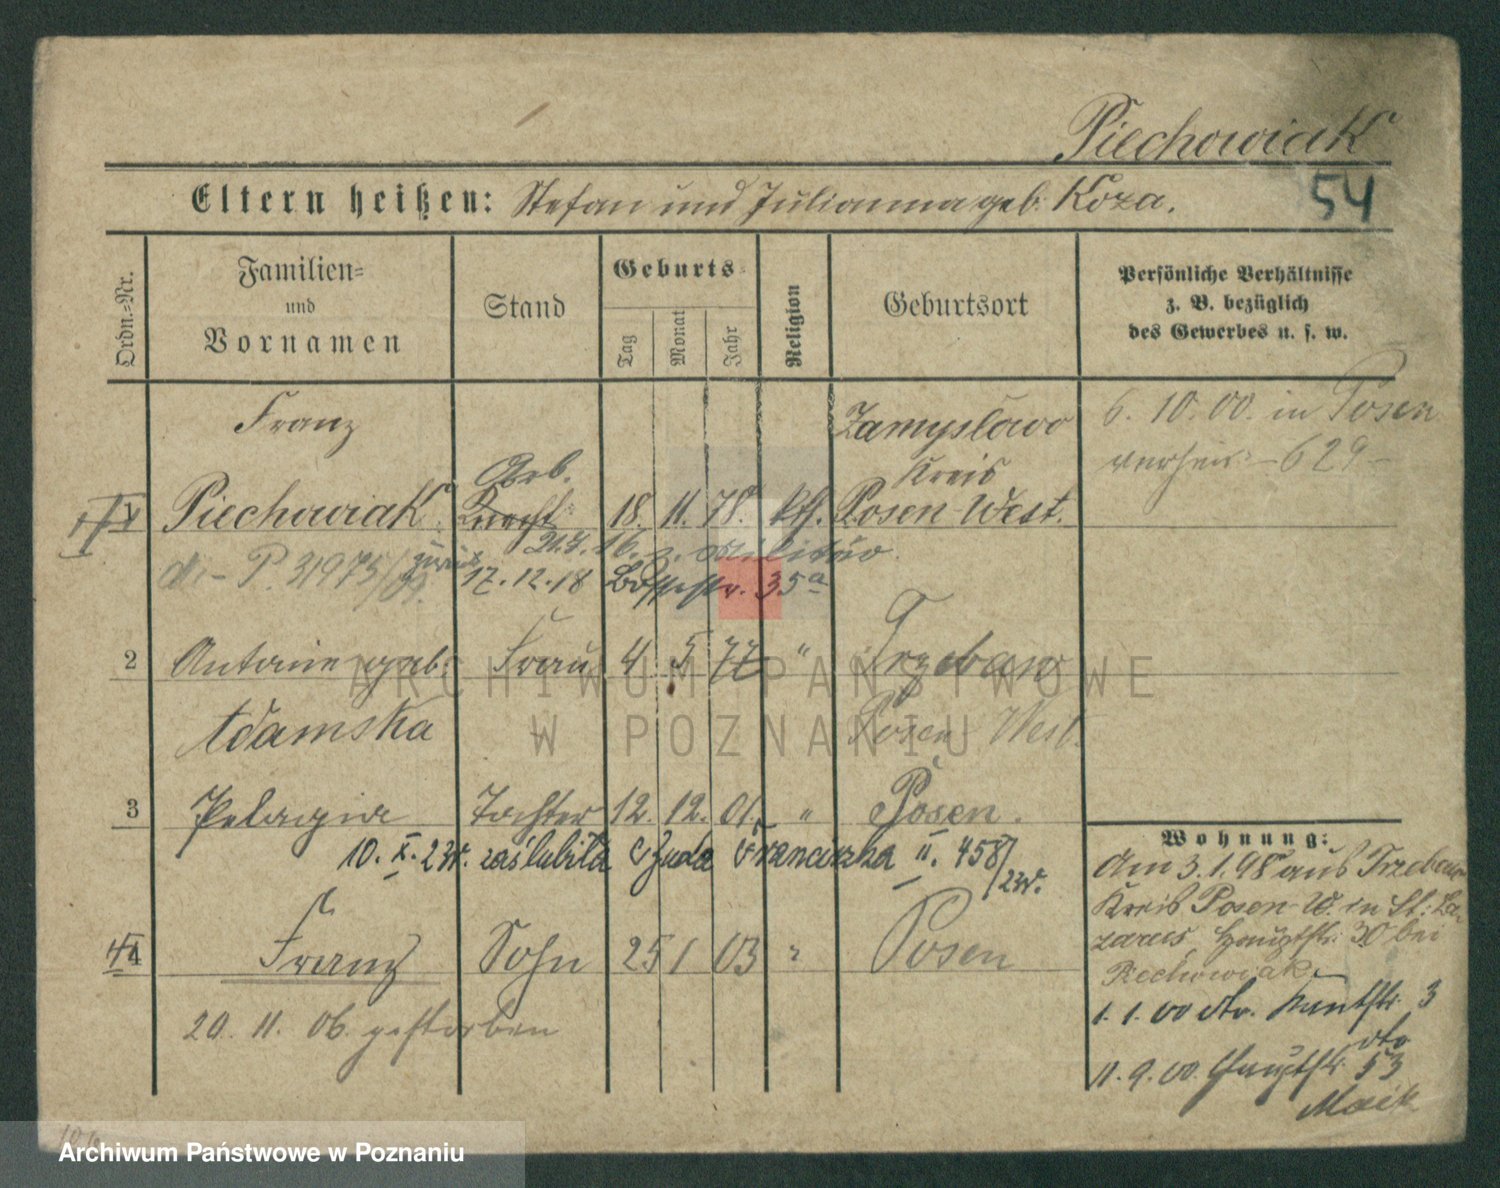 Piechowiak
54
Eltern heißen: Stefan und Julianna geb. Koza.
Ordn.-Nr.
Familien-
und
Vornamen
Stand
Geburts-
Tag
Monat
Jahr
Religion
Geburtsort
Persönliche Verhältnisse
z. B. bezüglich
des Gewerbes u. s. w.
Franz
Zamyslowo
6. 10. 00. in Posen
Arb.
Kreis
verheir. - 629 -
1 Piechowiak Knecht 18. 11. 78. kth. Posen West.
21.7.16. z. Militär
P. 31975/ zurück 17. 12. 18 35a
2 Antonie geb. Frau 4 5 77 "
Adamska Posen West.
3 Pelagia Tochter 12. 12. 01. " Posen.
10. X. 23r. zaślubiła Franciszka II. 458/23r.
4 Franz Sohn 25 1 03 " Posen
20. 11. 06. gestorben
Wohnung:
Am 3.1.98 aus
Kreis Posen W. in St. La-
zarus, Hauptstr. 30 bei
Piechowiak
1. 1. 00 dto. 3
dto
11. 9. 00. Hauptstr. 53
ARCHIWUM PAŃSTWOWE
W POZNANIU
Archiwum Państwowe w Poznaniu